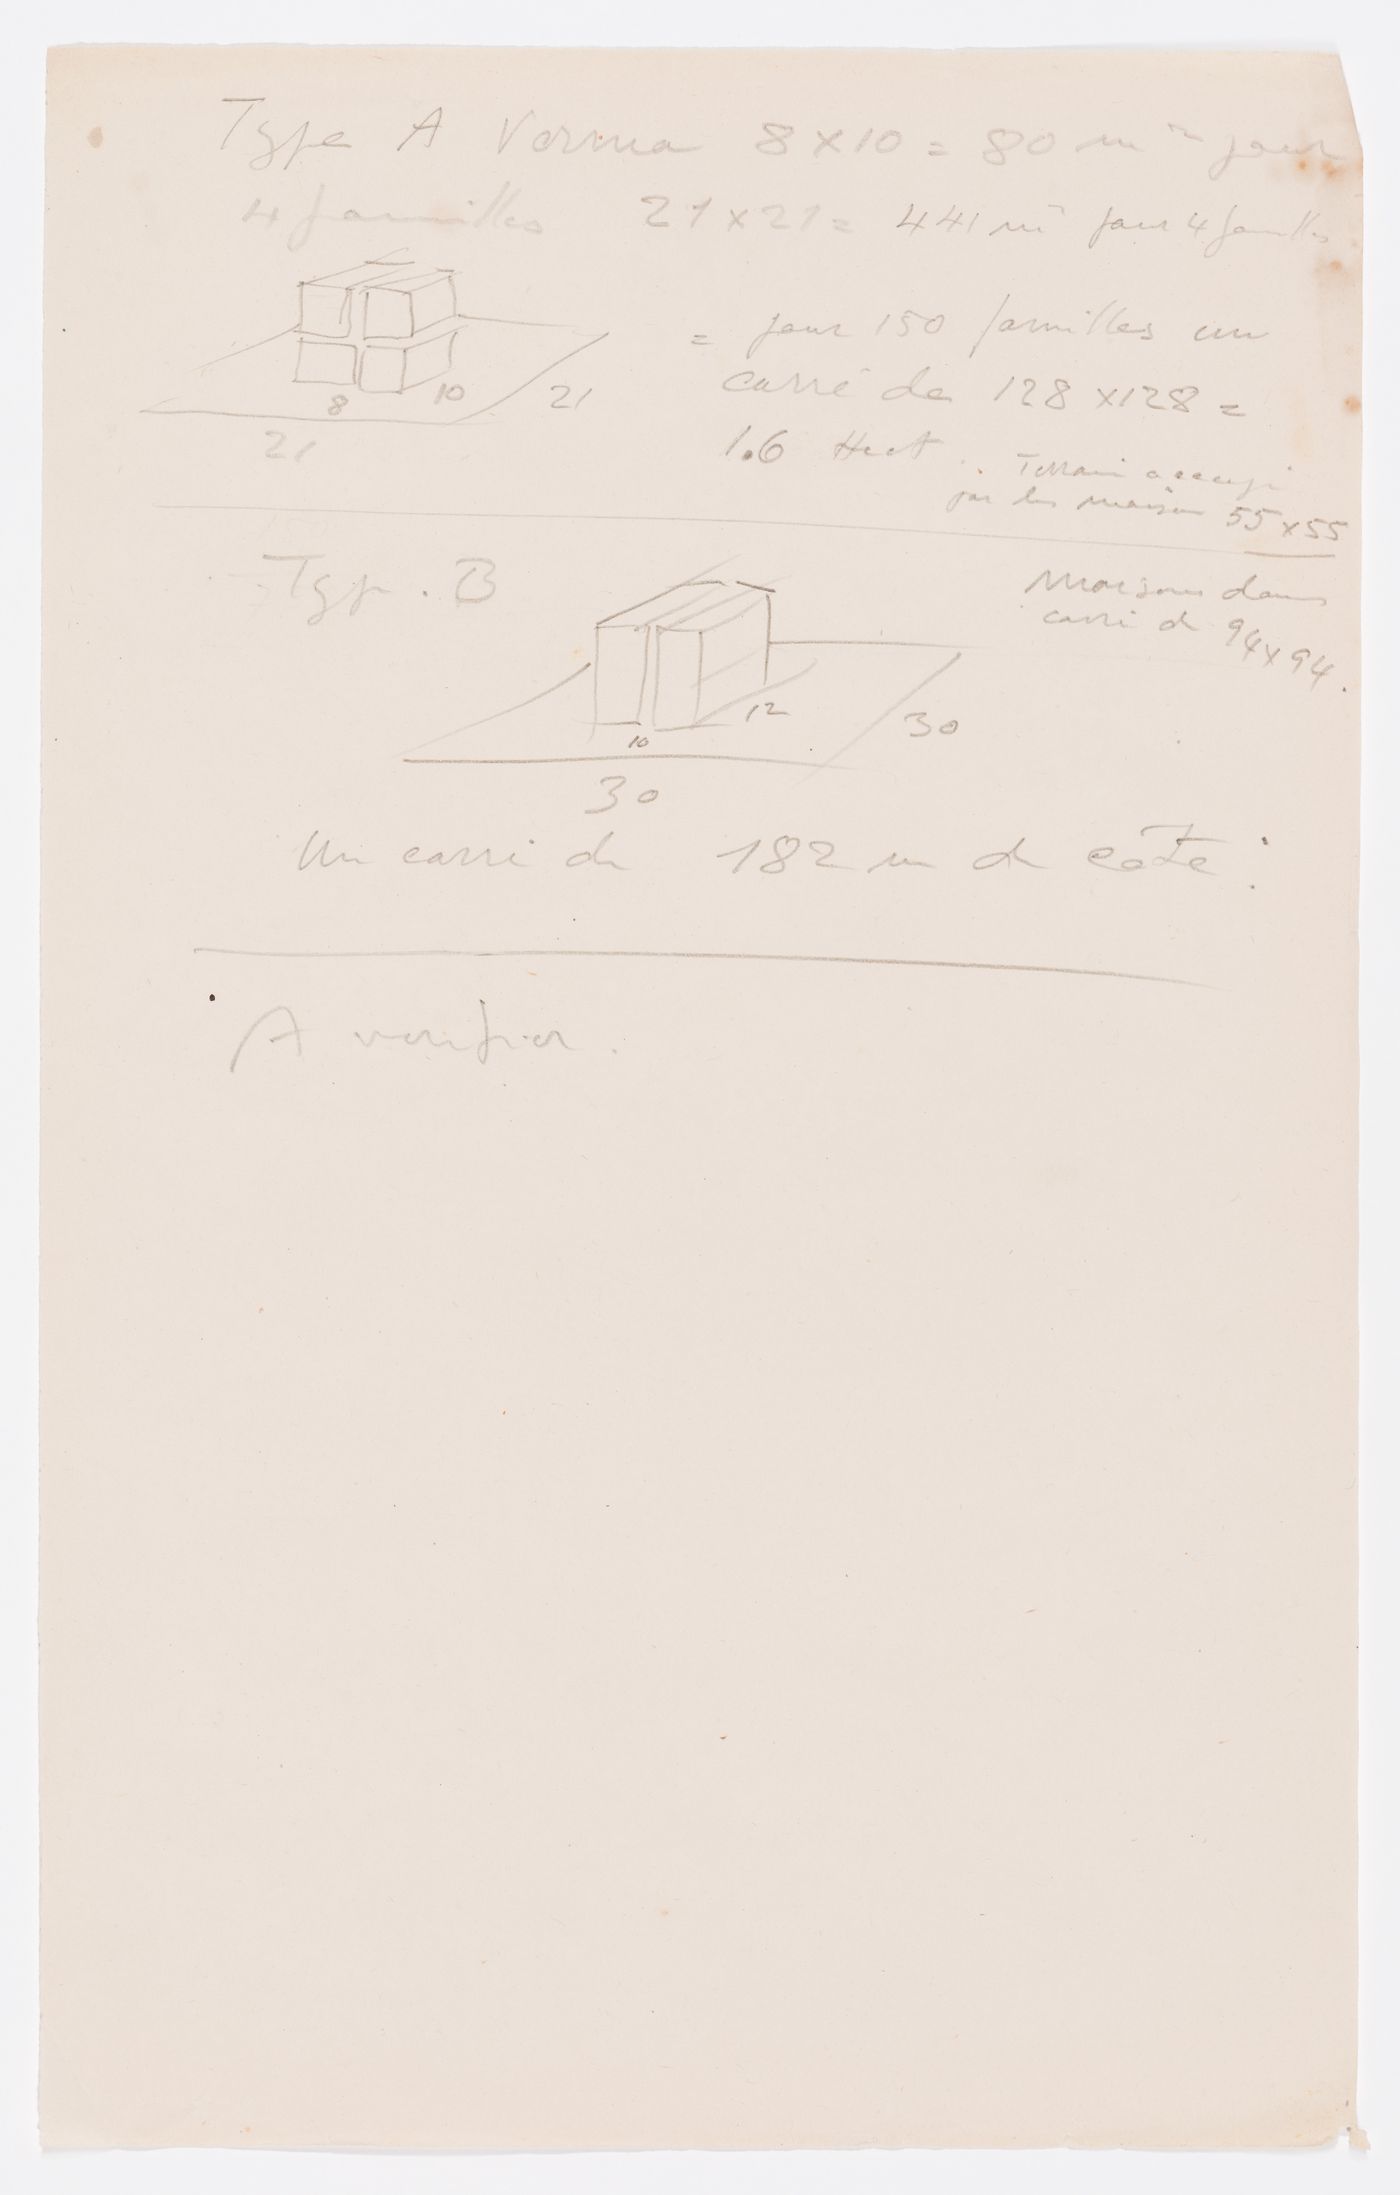 Type A Verma 8×10 = 80 m² pour
4 familles 21×21 = 441 m² pour 4 familles
= pour 150 familles un
carré de 128 × 128 =
1.6 Hect.
Terrain occupé
par les maisons 55×55
8
10
21
21
Type. B
Maisons dans
carré de 94×94.
10
12
30
30
Un carré de 182 m de côté :
A verifier.